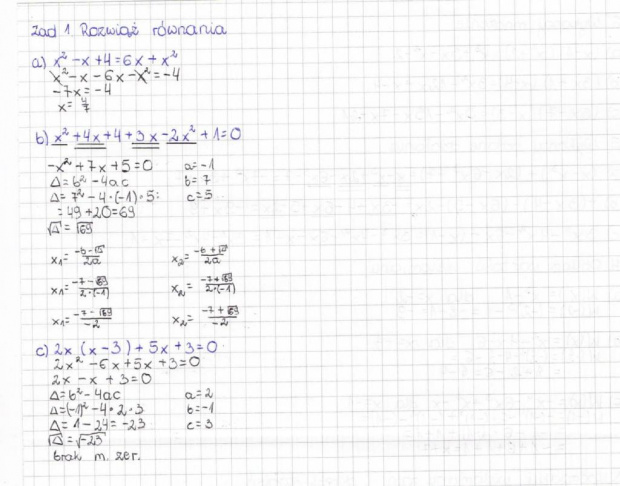 Zad 1. Rozwiąż równania
a) x² - x + 4 = 6x + x²
x² - x - 6x - x² = -4
-7x = -4
x = 4/7
b) x² + 4x + 4 + 3x - 2x² + 1 = 0
-x² + 7x + 5 = 0 a = -1
Δ = b² - 4ac b = 7
Δ = 7² - 4·(-1)·5 = c = 5
= 49 + 20 = 69
√Δ = √69
x₁ = (-b - √Δ)/2a x₂ = (-b + √Δ)/2a
x₁ = (-7 - √69)/(2·(-1)) x₂ = (-7 + √69)/(2·(-1))
x₁ = (-7 - √69)/-2 x₂ = (-7 + √69)/-2
c) 2x (x - 3) + 5x + 3 = 0
2x² - 6x + 5x + 3 = 0
2x - x + 3 = 0
Δ = b² - 4ac a = 2
Δ = (-1)² - 4·2·3 b = -1
Δ = 1 - 24 = -23 c = 3
√Δ = √-23
brak m. zer.